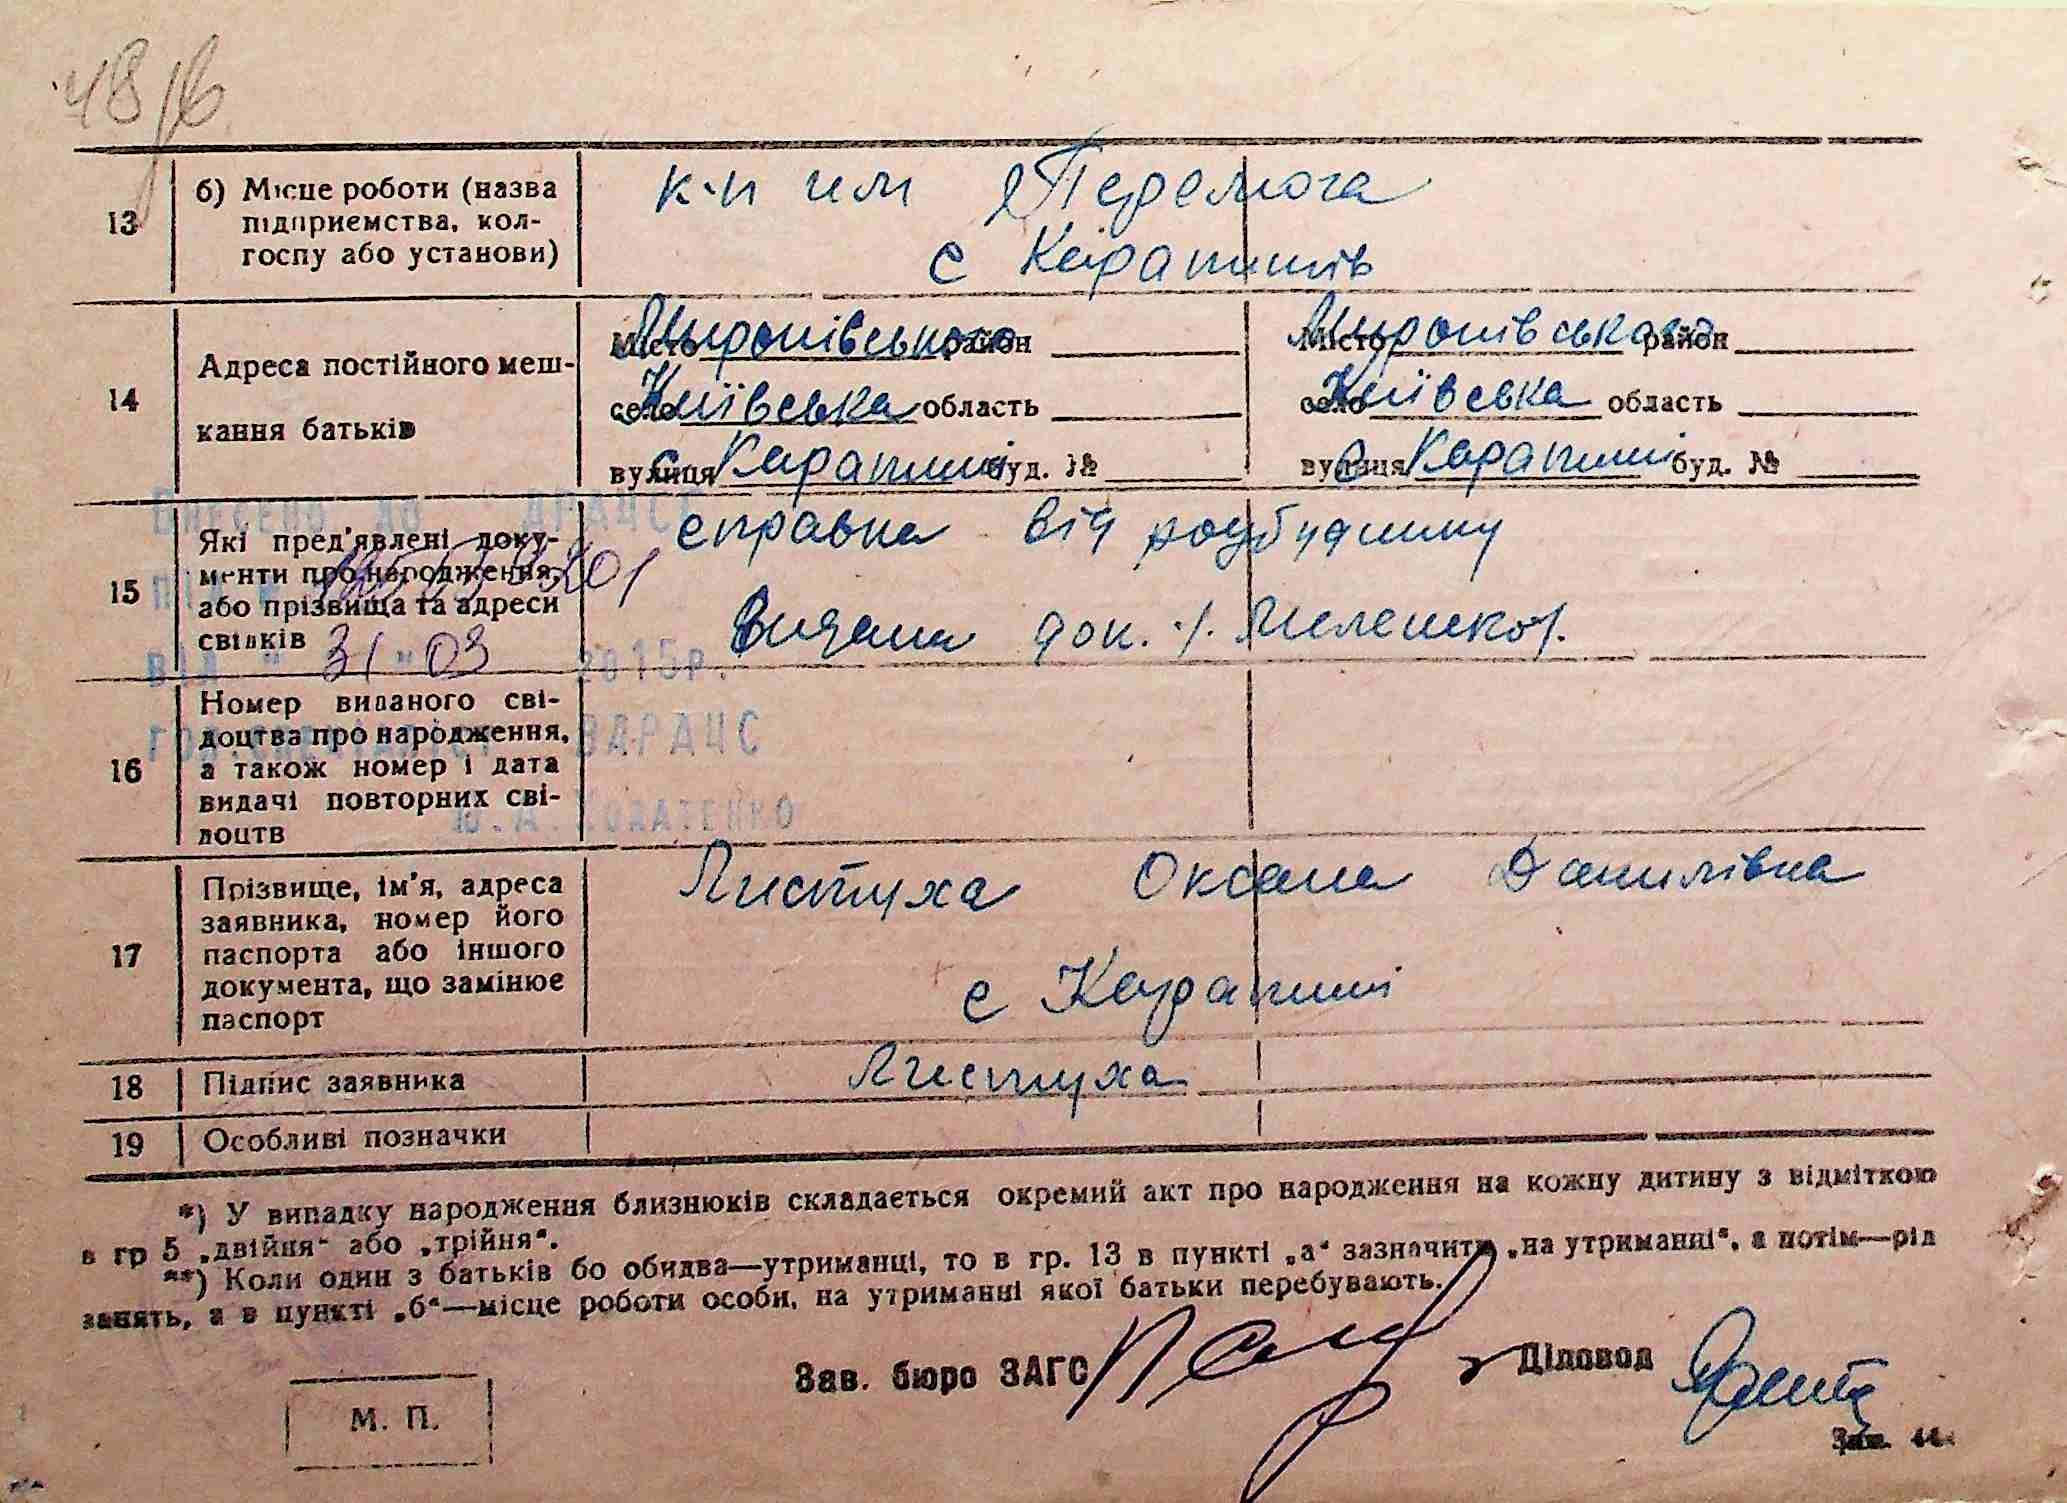 48
13
б) Місце роботи (назва
підприємства, кол-
госпу або установи)
к-п им Перемога
с Карапишів
14
Адреса постійного меш-
кання батьків
місто Миронівського район
село Київська область
вулиця с Карапиші буд. №
місто Миронівського район
село Київська область
вулиця с Карапиші буд. №
Внесено до ДРАЦСГ
15
Які пред'явлені доку-
менти про народження,
або прізвища та адреси
свідків
справка від родбудинку
Видана док. Мелешко
від " 31 " 03 2015р.
16
Номер виданого сві-
доцтва про народження,
а також номер і дата
видачі повторних сві-
доцтв
ВДРАЦС
17
Прізвище, ім'я, адреса
заявника, номер його
паспорта або іншого
документа, що замінює
паспорт
Листуха Оксана Данилівна
с Карапиші
18
Підпис заявника
Листуха
19
Особливі позначки
*) У випадку народження близнюків складається окремий акт про народження на кожну дитину з відміткою
в гр 5 „двійня“ або „трійня“.
**) Коли один з батьків бо обидва—утриманці, то в гр. 13 в пункті „а“ зазначити „на утриманні“, а потім—рід
занять, а в пункті „б“—місце роботи особи, на утриманні якої батьки перебувають.
Зав. бюро ЗАГС
Діловод
М. П.
Зам. 44